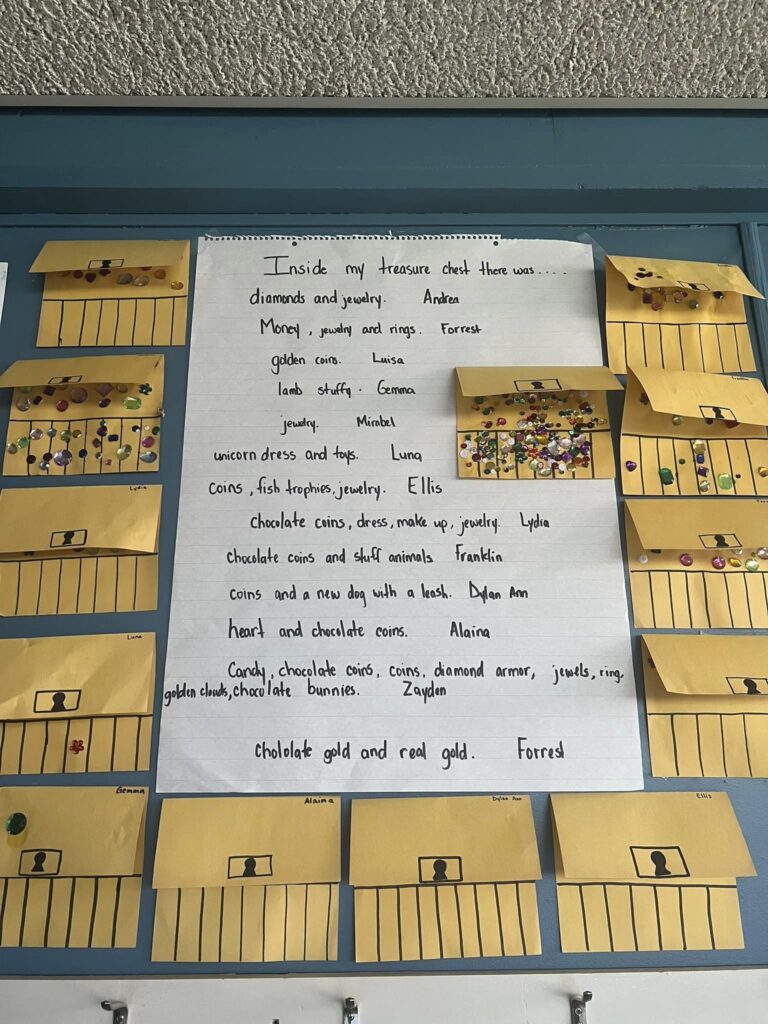 Inside my treasure chest there was....
diamonds and jewelry. Andrea
Money, jewelry and rings. Forrest
golden coins. Luisa
lamb stuffy. Gemma
jewelry. Mirabel
unicorn dress and toys. Luna
coins, fish trophies, jewelry. Ellis
Chocolate coins, dress, make up, jewelry. Lydia
chocolate coins and stuff animals Franklin
coins and a new dog with a leash. Dylan Ann
heart and chocolate coins. Alaina
Candy, chocolate coins, coins, diamond armor, jewels, ring,
golden clouds, chocolate bunnies. Zayden
chololate gold and real gold. Forrest
Lydia
Luna
Gemma
Alaina
Dylan Ann
Ellis